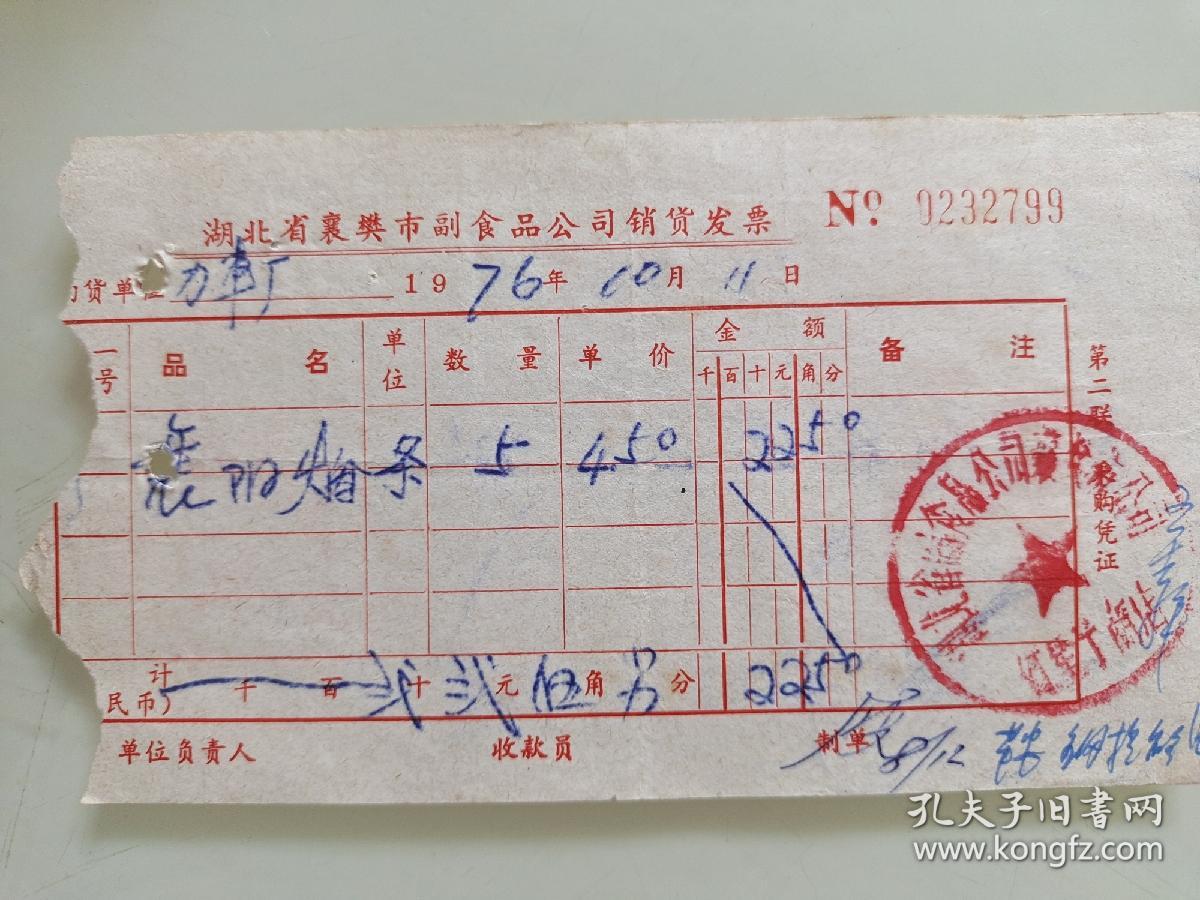 湖北省襄樊市副食品公司销货发票 № 0232799
货单 力车厂 1976年 10月 11日
一号 品名 单位 数量 单价 金额 备注
千 百 十 元 角 分
阳烟 条 5 4.50 2250
计 千 百 弍十 弍元 伍角 另分 2250
民币
单位负责人 收款员 制单
8/12
第二联 采购凭证
孔夫子旧书网
www.kongfz.com